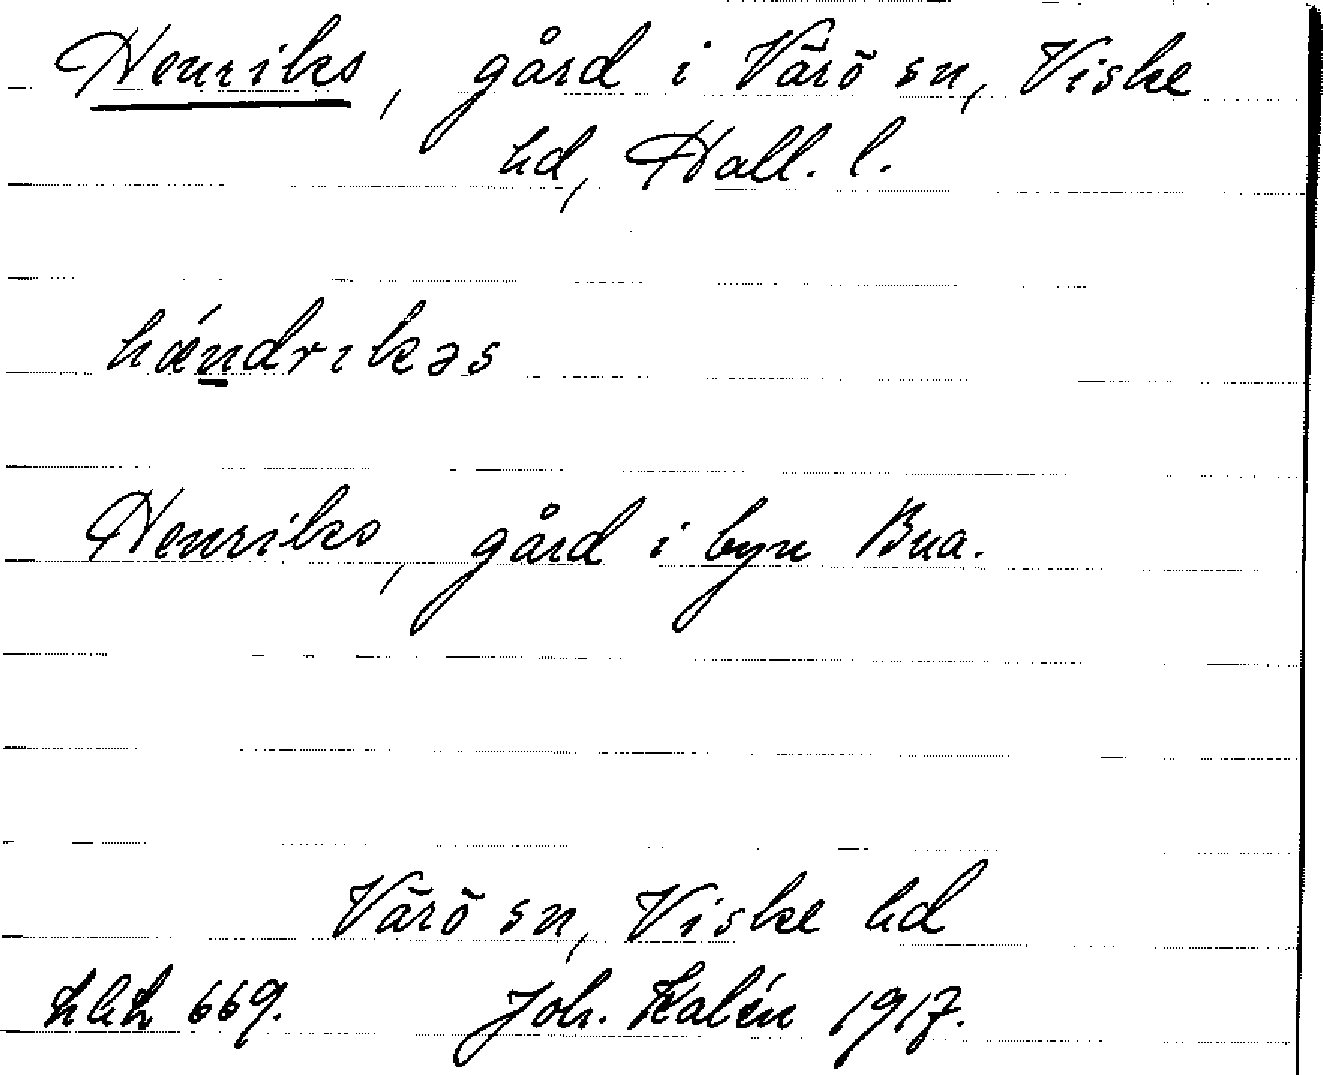 Henriks, gård i Värö sn, Viske
hd, Hall. l.
hǽndrıkəs
Henriks, gård i byn Bua.
Värö sn, Viske hd
669. Joh. Kalén 1917.